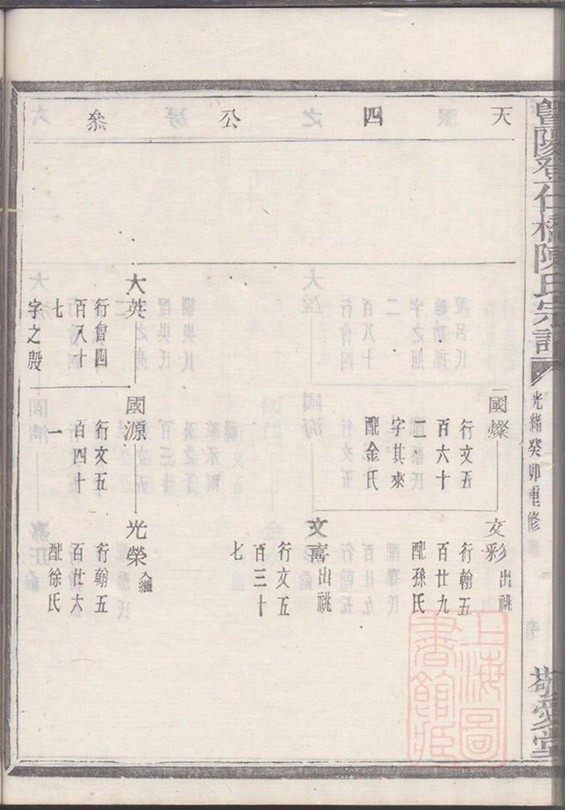 暨陽登仕橋陳氏宗譜
光緒癸卯重修
敬愛堂
天四公系
國燦
行文五
百六十
二
字其來
配金氏
文彩出祧
行翰五
百廿九
配孫氏
文喜出祧
行文五
百三十
七
大英
行會四
百八十
七
字之殷
國源
行文五
百四十
一
光榮入繼
行翰五
百廿六
配徐氏
上海圖
書館藏